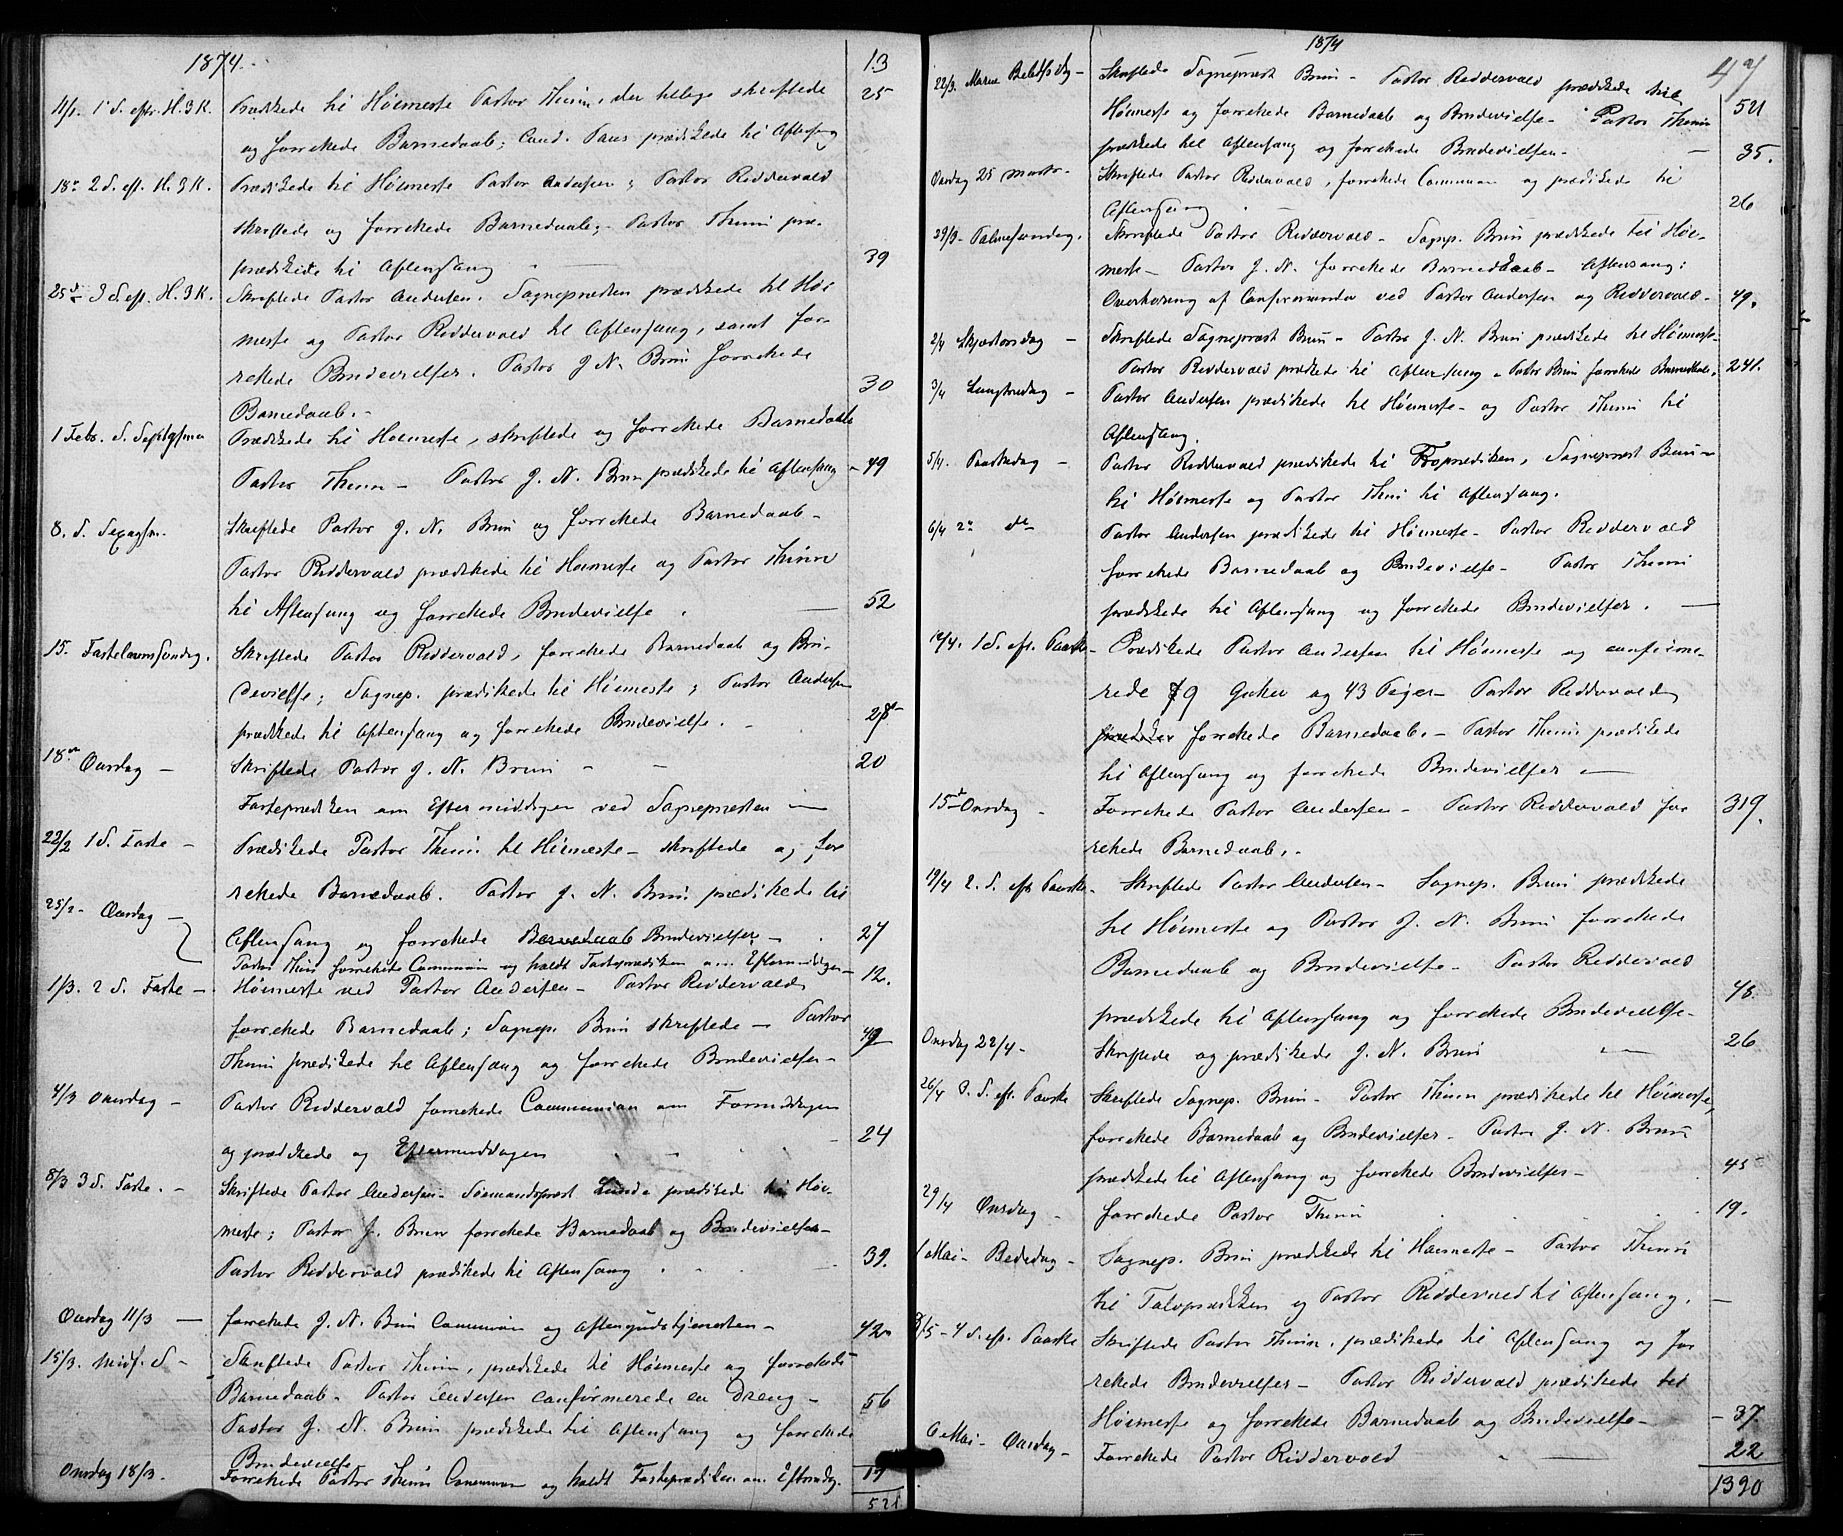 1874. 13
11/1. 1 S. eftr. H. 3 K. Prædikede til Høimesse Pastor Thinn, der tillige skriftede 25
og forrettede Barnedaab; Cand. prædikede til Aftensang
18. 2 S. eft. H. 3 K. Prædikede til Høimesse Pastor Andersen; Pastor Riddervold
skriftede og forrettede Barnedaab; Pastor Thinn præ-
prædikede til Aftensang 39
25 3 S. eft. H. 3 K. Skriftede Pastor Andersen. Sognepresten prædikede til Høi
messe og Pastor Riddervold til Aftensang, samt for-
rettede Brudevielser. Pastor J. N. Brun forrettede
Barnedaab. 30
1 Febr. S. Septuagesima Prædikede til Høimesse, skriftede og forrettede Barnedaab
Pastor Thinn – Pastor J. N. Brun prædikede til Aftensang – 49
8. S. Sexages. Skriftede Pastor J. N. Brun og forrettede Barnedaab –
Pastor Riddervold prædikede til Høimesse og Pastor Thinn
til Aftensang og forrettede Brudevielse. — 52
15. Fastelavnssøndag. Skriftede Pastor Riddervold, forrettede Barnedaab og Bru-
devielse; Sognep. prædikede til Høimesse; Pastor Andersen
prædikede til Aftensang og forrettede Brudevielse. – 28
18 Onsdag – Skriftede Pastor J. N. Brun – – 20
Fasteprædiken om Eftermiddagen ved Sognepresten —
22/2 1 S. Faste – Prædikede Pastor Thinn til Høimesse – skriftede og for
rettede Barnedaab. Pastor J. N. Brun prædikede til
25/2 – Onsdag – Aftensang og forrettede Barnedaab Brudevielser – 27
Pastor Thinn forrettede Communion og holdt Fasteprædiken om Eftermiddagen – 12.
1/3. 2 S. Faste – Høimesse ved Pastor Andersen – Pastor Riddervold
forrettede Barnedaab; Sognep. Brun skriftede – Pastor 49
Thinn prædikede til Aftensang og forrettede Brudevielser –
4/3 Onsdag – Pastor Riddervold forrettede Communion om Formiddagen
og prædikede og Eftermiddagen – 24
8/3 3 S. Faste. – Skriftede Pastor Andersen – Sømandsprest Lunde prædikede til Høi-
messe; Pastor J. Brun forrettede Barnedaab og Brudevielser –
Pastor Riddervold prædikede til Aftensang 39.
Onsdag 11/3 — forrettede J. N. Brun Communion og Aftengudstjenesten – 42
15/3. Midf. S – Skriftede Pastor Thinn, prædikede til Høimesse og forrettede
Barnedaab – Pastor Andersen confirmerede en Dreng – 56
Pastor J. N. Brun prædikede til Aftensang og forrettede
Brudevielse
Onsdag 18/3. Forrettede Pastor Thinn Communion og holdt Fasteprædiken om Eftermdag. 19
521
1874 47
22/3. Mariæ Bebudelsdag – Skriftede Sogneprest Brun – Pastor Riddervold prædikede til
Høimesse og forrettede Barnedaab og Brudevielse – Pastor Thinn 521
prædikede til Aftensang og forrettede Brudevielsen – — 35.
Onsdag 25 Marts – Skriftede Pastor Riddervold, forrettede Communion og prædikede til
Aftensang 26
29/3 – Palmesøndag. Skriftede Pastor Riddervold – Sognep. Brun prædikede til Høi-
messe – Pastor J. N. forrettede Barnedaab – Aftensang:
Overhøring af Confirmander ved Pastor Andersen og Riddervold – 49.
2/4 Skjærtorsdag – Skriftede Sogneprest Brun – Pastor J. N. Brun prædikede til Høimesse –
Pastor Riddervold prædikede til Aftensang – Pastor Brun forrettede Barnedaab. 241.
3/4 Langfredag – Pastor Andersen prædikede til Høimesse – og Pastor Thinn til
Aftensang.
5/4. Paaskedag – Pastor Riddervold prædikede til Froprædiken, Sogneprest Brun –
til Høimesse og Pastor Thinn til Aftensang.
6/4 2 do Pastor Andersen prædikede til Høimesse – Pastor Riddervold
forrettede Barnedaab og Brudevielse – Pastor Thinn
prædikede til Aftensang og forrettede Brudevielser. —
12/4. 1 S. eft. Paaske – Prædikede Pastor Andersen til Høimesse og confirme-
rede 79 Gutter og 43 Piger – Pastor Riddervold
prædiker forrettede Barnedaab. – Pastor Thinn prædikede
til Aftensang og forrettede Brudevielser —
15 Onsdag – Forrettede Pastor Andersen – Pastor Riddervold for 319.
rettede Barnedaab. –
19/4 2. S. eft Paaske – Skriftede Pastor Andersen – Sognep. Brun prædikede
til Høimesse og Pastor J. N. Brun forrettede
Barnedaab og Brudevielse – Pastor Riddervold
prædikede til Aftensang og forrettede Brudevielse – 48.
Onsdag 22/4 – Skriftede og prædikede J. N. Brun — 26
26/4 3. S. eft. Paaske Skriftede Sognep. Brun – Pastor Thinn prædikede til Høimesse,
forrettede Barnedaab og Brudevielser – Pastor J. N. Brun
prædikede til Aftensang og forrettede Brudevielser – 45
29/4 Onsdag – forrettede Pastor Thinn 19.
1 Mai – Bededag – Sognep. Brun prædikede til Høimesse – Pastor Thinn
til Froprædiken og Pastor Riddervold til Aftensang. —
3/5 – 4 S. eft. Paaske Skriftede Pastor Thinn, prædikede til Aftensang og for
rettede Brudevielser – Pastor Riddervold prædikede til
Høimesse og forrettede Barnedaab og Brudevielse – 37.
6 Mai – Onsdag – Forrettede Pastor Riddervold — 22
1390